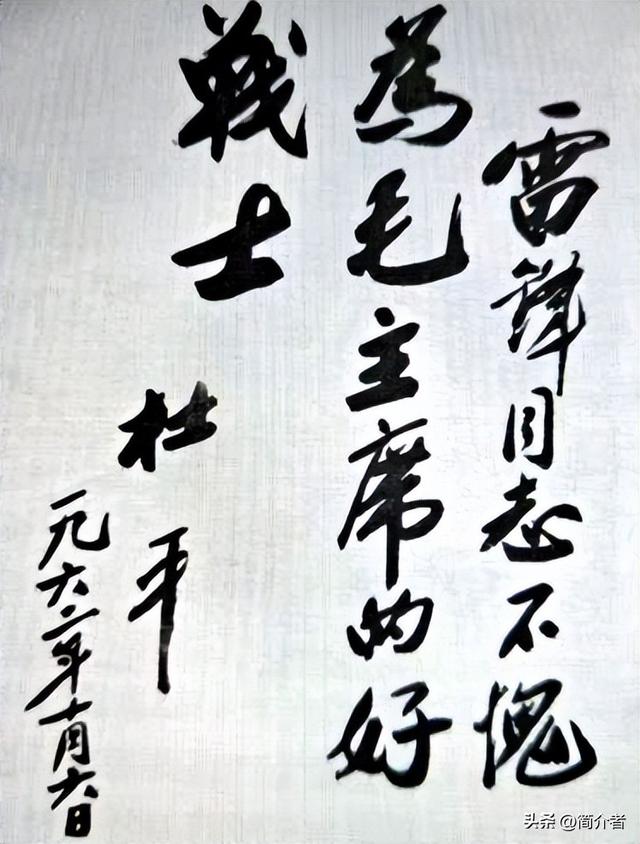 雷锋同志不愧
為毛主席的好
戰士
杜平
一九六二年十月六日
头条 @简介者